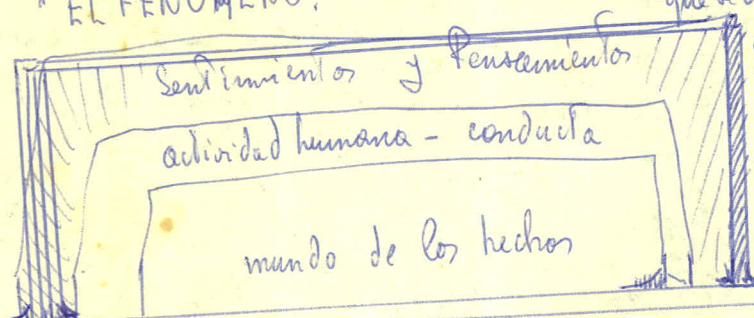 EL FENOMENO.
Sentimientos y Pensamientos
actividad humana - conducta
mundo de los hechos